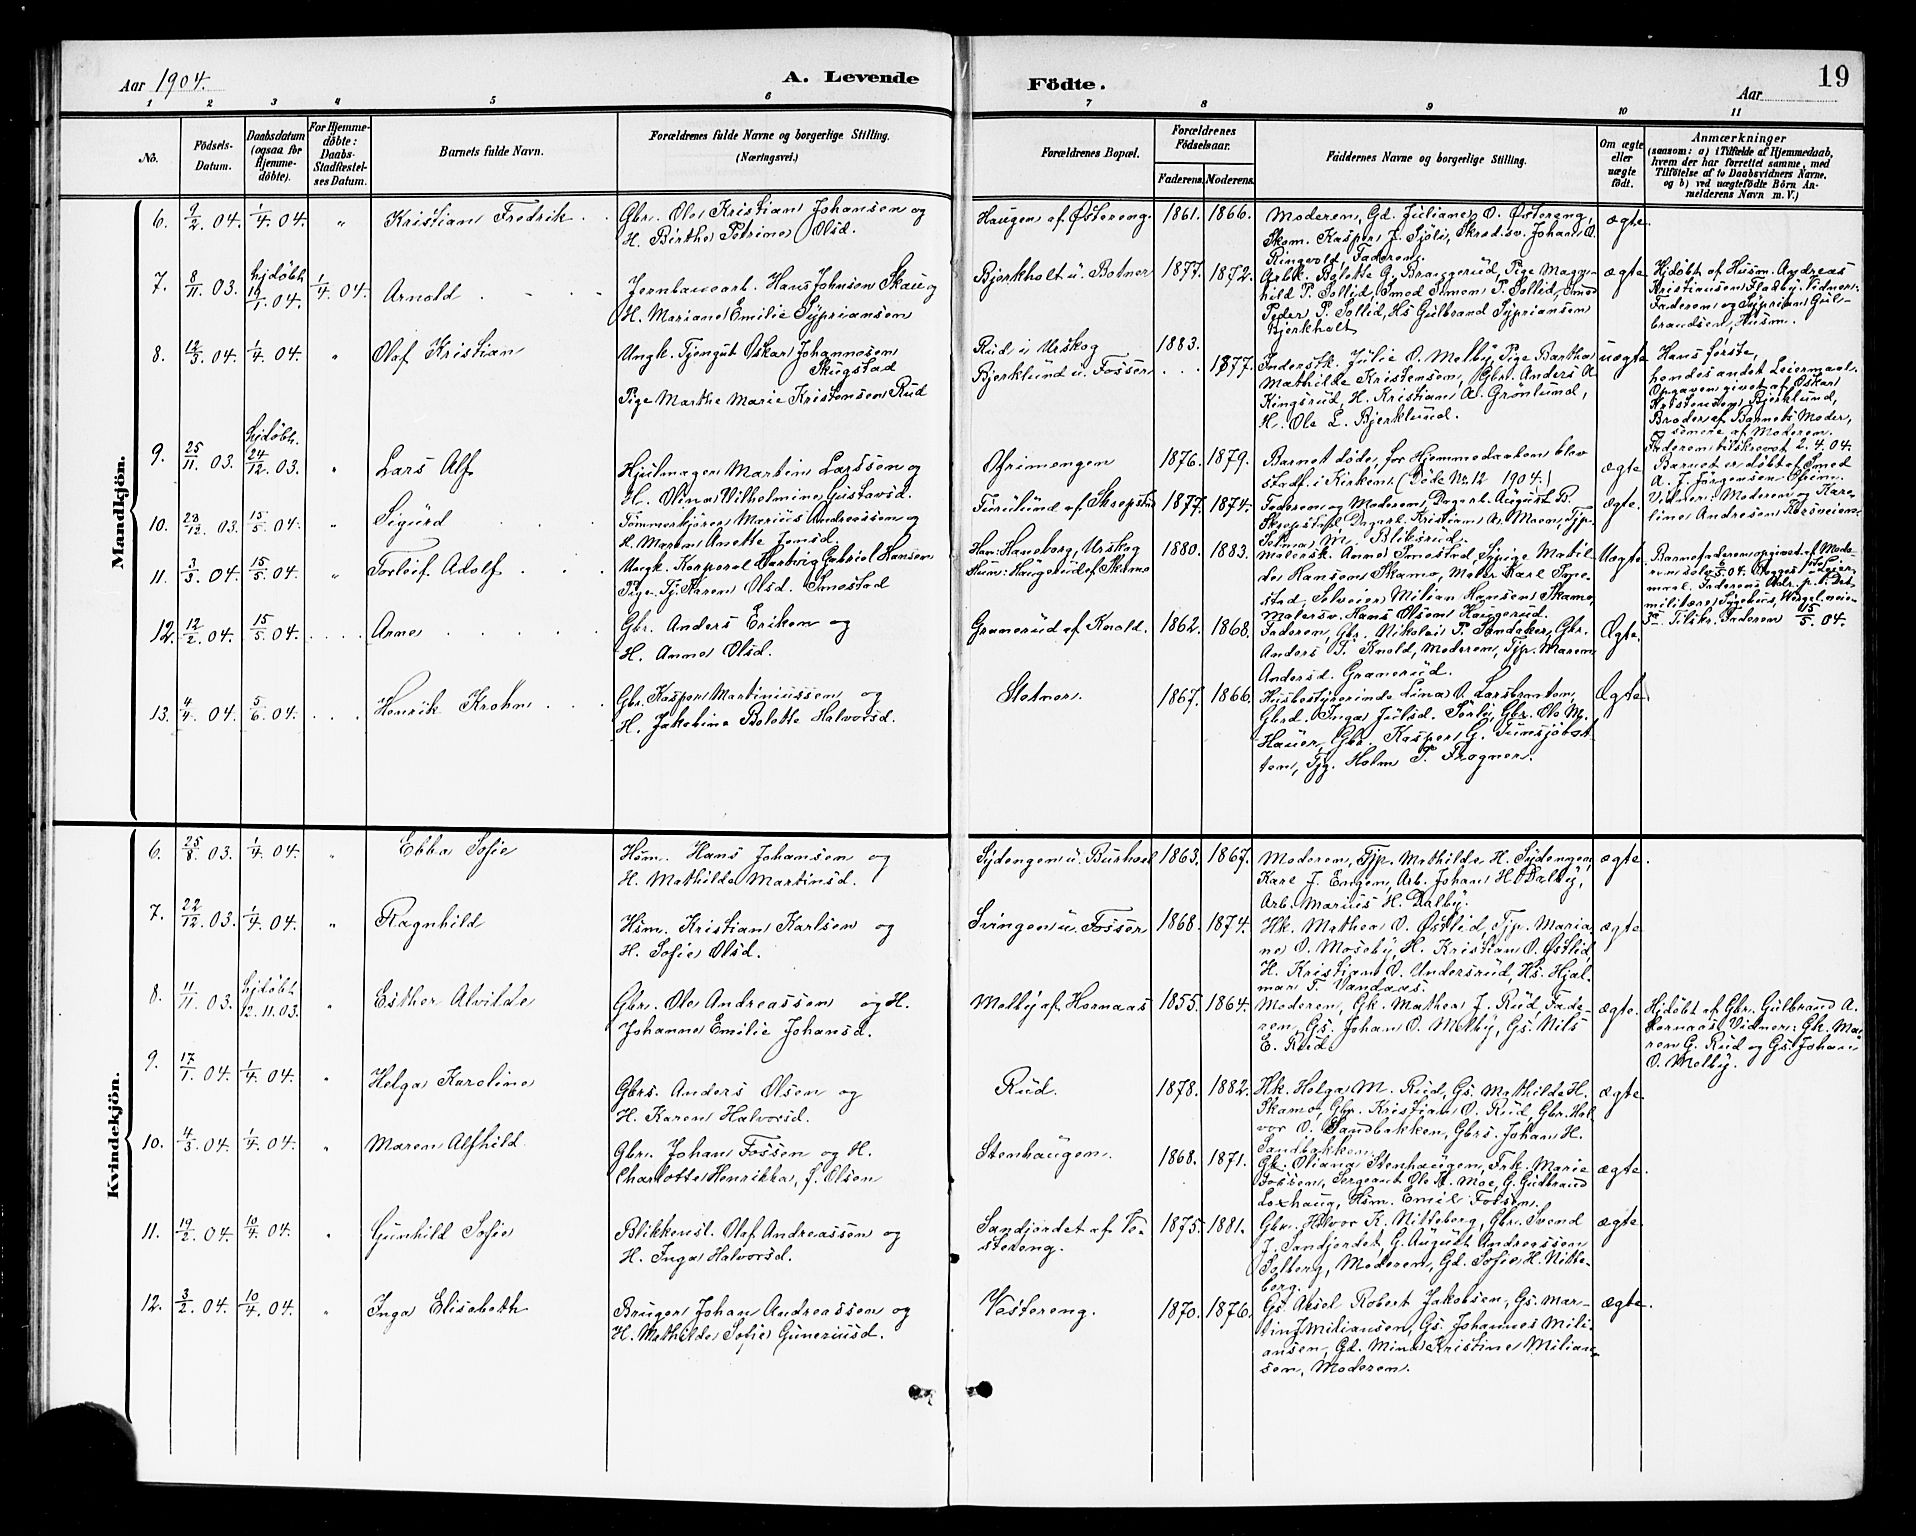 Aar 1904. A. Levende
Födte. Aar 19
1 2 3 4 5 6 7 8 9 10 11
No.
Födsels-Datum.
Daabsdatum (ogsaa for Hjemme-döbte).
For Hjemme-döbte: Daabs-Stadfæstel-ses Datum.
Barnets fulde Navn.
Forældrenes fulde Navne og borgerlige Stilling.
(Næringsvei.)
Forældrenes Bopæl.
Forældrenes Födselsaar.
Faderens. Moderens.
Faddernes Navne og borgerlige Stilling.
Om ægte eller uægte födt.
Anmærkninger
(saasom: a) i Tilfælde af Hjemmedaab,
hvem der har forrettet samme, med
Tilföielse af to Daabsvidners Navne.
og b) ved uægtefödte Börn An-
melderens Navn m. V.)
Mandkjön.
6. 9/2 04. 1/4 04. " Kristian Fredrik Gbr. Ole Kristian Johansen og
H. Birthe Petrine Olsd.
Haugen af Østereng. 1861. 1866. Moderen, Gd. Juliane O. Østereng,
Skom. Kasper J. Sjøli, Skrædsv. Johan O.
Ringvold, Faderen.
ægte.
7. 8/11 03. hjdøbt 10/1 04. 1/4 04. Arnold Jernbanearb. Hans Johnsen Skau og
H. Mariane Emilie Sypriansen
Bjerkholt u. Botner 1877. 1872. Arbk. Bolette G. Braggerud, Pige Magn-
hild P. Sollid, Smed Simen P. Sollid, Smed
Peder P. Sollid, Hs Gulbrand Sypriansen
Bjerkholt
ægte
Hjdøbt af Husm. Andreas
Kristiansen Fladby. Vidner:
Faderen og Syprian Gul-
brandsen, Husm.
8. 12/3 04. 1/4 04. " Olaf Kristian Ungk. Tjengut Oskar Johannesen
Skugstad
Pige Marthe Marie Kristensen Rud
Rud i Urskog 1883.
Bjerklund u. Fosser . . . 1877. Indersk. Julie O. Melby, Pige Barthe
Mathilde Kristensen, Gbr. Anders A
Kingsrud, H. Kristian A. Grønlund,
H. Ole L. Bjerklund.
uægte
Hans første,
hendes andet Leiermaal.
Opgaven givet af Oskar
Kristensen Bjerklund,
Broder af Barnets Moder,
senere af Moderen.
Faderen tilskrevet 2.4.04.
9. 25/11 03. hjdøbt. 24/12 03. " Lars Alf Hjulmager Martin Larssen og
H. Olina Vilhelmine Gustavsd.
Ofrimengen 1876. 1879. Barnet døde, før Hjemmedaaben blev
stadf. i Kirken. (Døde No. 12 1904.)
ægte
Barnet er døbt af Smed
A. J. Jürgensen
Vidner: Moderen og Kare-
line Andresen Korsveien
10. 23/12 03. 15/5 04. " Sigurd Tømmerkjører Marius Andreassen og
H. Maren Anette Jensd.
Furulund af Skrepstad 1877. 1874. Faderen og Moderen, Dagarb. August B.
Skrepstad, Dagarb. Kristian A. Moen, Tjp.
Selma M. Blibsrud.
ægte
11. 3/3 04. 15/5 04. " Torleif Adolf Ungk. Korporal Hartvig Gabriel Hansen
Pige Tj. Karen Olsd. Smestad
Han: Haneborg, Urskog 1880. 1883.
Hun: Haugerud af Skamo
Malersk. Anne Smestad, Sypige Matil-
de Hansen Skamo, Maler Karl Sme-
stad, Selveier Milian Hansen Skamo,
Malersv. Hans Olsen Haugerud.
Uægte
Barnefaderen opgivet af Mode-
ren selv 6/5 04. Begges 1ste Leier-
maal. Faderens Adr. p. t. Det
militære Sygehus, Wergelveien
3a. Tilskr. Faderen 15/5 04.
12. 12/2 04. 15/5 04. Arne Gbr. Anders Eriksen og
H. Anne Olsd.
Granerud af Knold. 1862. 1868. Faderen, Gbr. Nikolai P. Sandaker, Gbr.
Anders T. Knold, Moderen, Tjp. Maren
Andersd. Granerud.
Ægte.
13. 4/4 04. 5/6 04. Henrik Krohn Gbr. Kasper Martiniussen og
H. Jakobine Bolette Halvorsd.
Slotner. 1867. 1866. Husbestyrerinde Lina O. Larsbraaten,
Gbrd. Inga Julsd. Sørli, Gbr. Ole M.
Hauer, Gbr. Kasper G. Tunsjøbot-
ten, Tjg. Holm P. Frogner.
Ægte.
Kvindekjön.
6. 25/8 03. 1/4 04. " Ebba Sofie Hsm. Hans Johansen og
H. Mathilde Martinsd.
Sydengen u. Burhoel 1863. 1867. Moderen, Tjp. Mathilde H. Sydengen,
Karl J. Engen, Arb. Johan H. Dalby,
Arb. Marius H. Dalby.
ægte.
7. 22/12 03. 1/4 04. " Ragnhild Hsm. Kristian Karlsen og
H. Sofie Olsd.
Svingen u. Fosser 1868. 1874. Hk. Mathea O. Østlid, Tjp. Maria-
ne O. Moseby, H. Kristian O. Østlid,
H. Kristian O. Andersrud, Hs. Hjal-
mar T. Vandaas.
ægte.
8. 11/11 03. hjdøbt 12.11.03. " Esther Alvilde Gbr. Ole Andreassen og H.
Johanne Emilie Johansd.
Melby af Hornaas 1855. 1864. Moderen, Gk. Mathea J. Rud, Fade-
ren, Gs. Johan O. Melby, Gs. Nils
E. Rud.
ægte.
Hjdøbt af Gbr. Gulbrand A.
Hornaas Vidner: Gk. Ma-
ren G. Rud og Gs. Johan
O. Melby.
9. 17/1 04. 1/4 04. " Helga Karoline Gbrs. Anders Olsen og
H. Karen Halvorsd.
Rud. 1878. 1882. Hk. Helga M. Rud, Gs. Mathilde H.
Skamo, Gbr. Kristian O. Rud, Gbr. Hal-
vor O. Sandbakken, Gbrs. Johan H.
Sandbakken.
ægte.
10. 4/3 04. 1/4 04. " Maren Alfhild Gbr. Johan Fossen og H.
Charlotte Henrikka, f. Olsen
Stenhaugen. 1868. 1871. Gk. Oliana Stenhaugen, Frk. Marie
Fossen, Sergeant Ole A. Moe, G. Gudbrand
Loxhaug, Hsm. Emil Fossen.
ægte.
11. 19/2 04. 10/4 04. " Gunhild Sofie Blikkensl. Olaf Andreassen og
H. Inga Halvorsd.
Sandjordet af Ve-
stereng. 1875. 1881. Gbr. Halvor K. Nitteberg, Gbr. Svend
J. Sandjordet, G. August Andreassen
Solberg, Moderen, Gd. Sofie H. Nitte-
berg.
ægte.
12. 3/2 04. 10/4 04. " Inga Elisabeth Bruger Johan Andreassen og
H. Mathilde Sofie Guneriusd.
Vestereng. 1870. 1876. Gs. Aksel Robert Jakobsen, Gs. Mar-
tin Miliansen, Gs. Johannes Mili-
ansen, Gd. Mina Kristine Milian-
sen, Moderen.
ægte.